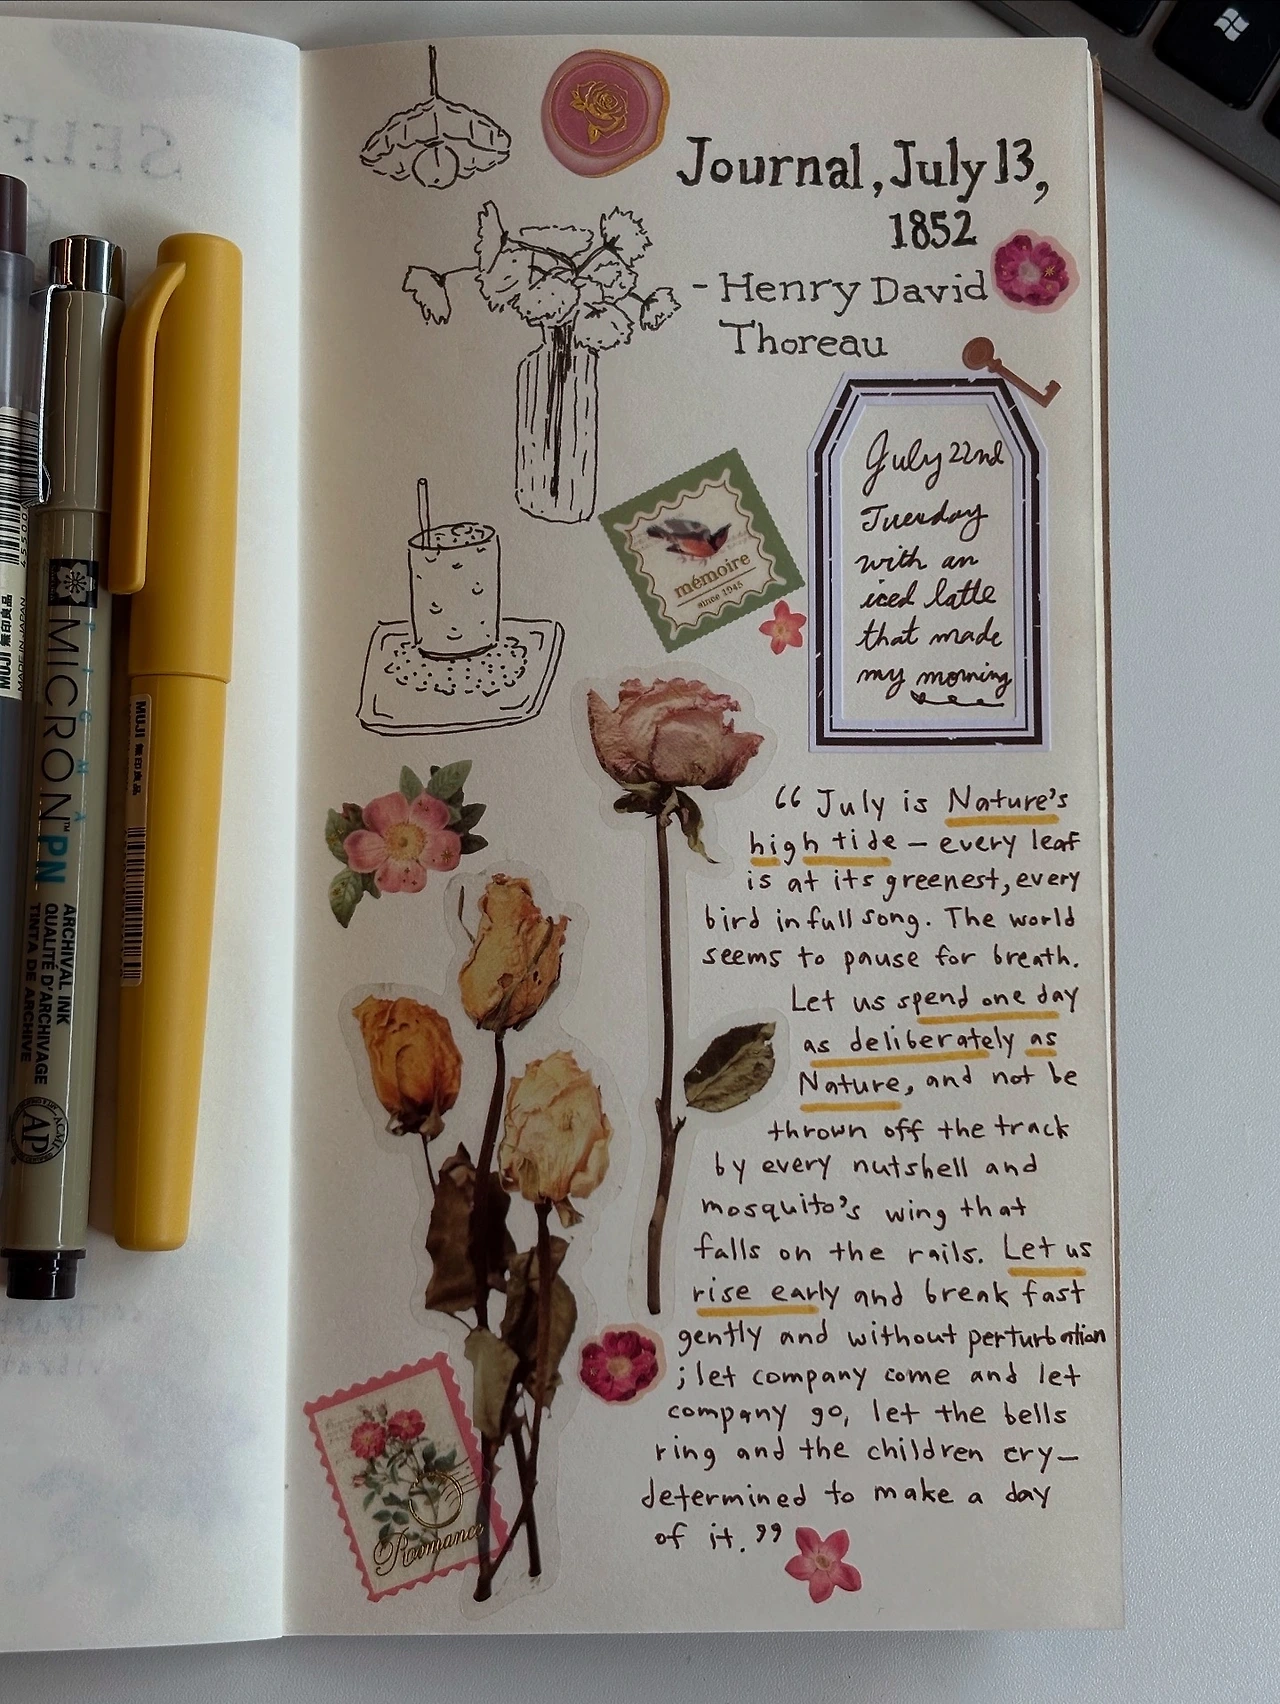 Journal, July 13,
1852
- Henry David
Thoreau
July 22nd
Tuesday
with an
iced latte
that made
my morning
mémoire
since 1945
“ July is Nature's
high tide — every leaf
is at its greenest, every
bird in full song. The world
seems to pause for breath.
Let us spend one day
as deliberately as
Nature, and not be
thrown off the track
by every nutshell and
mosquito's wing that
falls on the rails. Let us
rise early and break fast
gently and without perturbation
; let company come and let
company go, let the bells
ring and the children cry—
determined to make a day
of it.”
Romance
SELF
MICRON™ PN
PIGMA
ARCHIVAL INK
QUALITÉ D'ARCHIVAGE
TINTA DE ARCHIVE
AP
MUJI 無印良品
MUJI 無印良品
MADE IN JAPAN